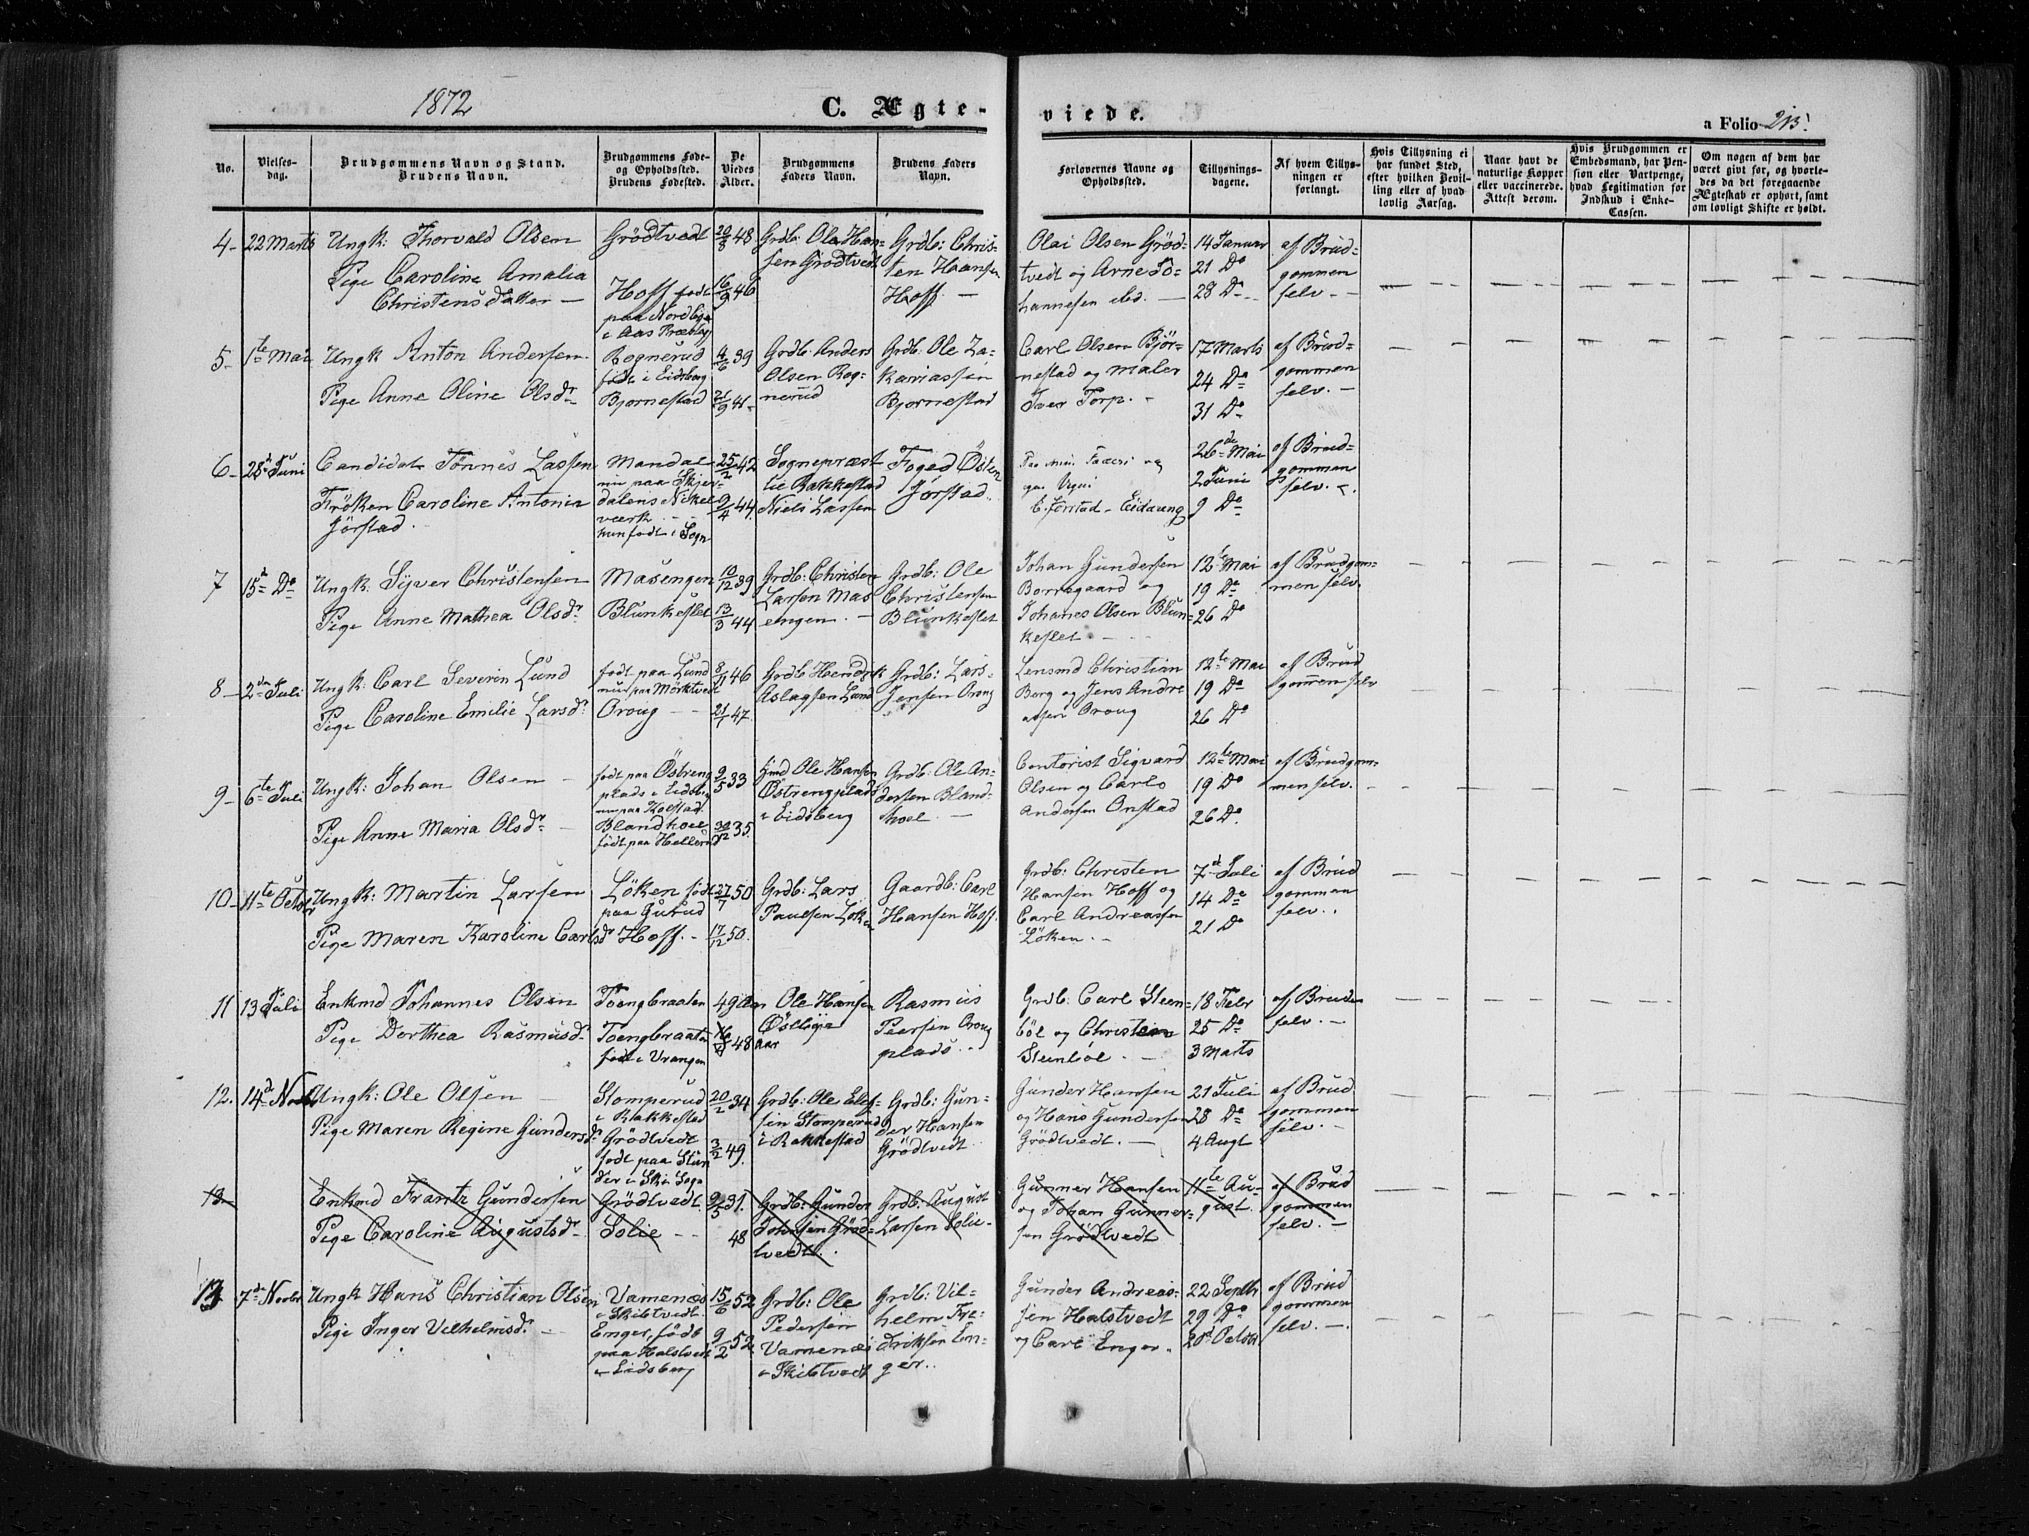 1872
C. Ægte-
viede.
a Folio 213.
No.
Vielses-
dag.
Brudgommens Navn og Stand.
Brudens Navn.
Brudgommens Føde-
og Opholdssted.
Brudens Fødested.
De
Viedes
Alder.
Brudgommens
Faders Navn.
Brudens Faders
Navn.
Forlovernes Navne og
Opholdssted.
Tillysnings-
dagene.
Af hvem Tillys-
ningen er
forlangt.
Hvis Tillysning ei
har fundet Sted,
efter hvilken Bevil-
ling eller af hvad
lovlig Aarsag.
Naar havt de
naturlige Kopper
eller vaccinerede.
Attest derom.
Hvis Brudgommen er
Embedsmand, har Pen-
sion eller Vartpenge,
hvad Legitimation for
Indskud i Enke-
Cassen.
Om nogen af dem har
været gift før, og hvorle-
des da det foregaaende
Ægteskab er ophørt, samt
om lovligt Skifte er holdt.
4- 22 Marts
Ungk: Thorvald Olsen
Pige Caroline Amalia
Christensdatter —
Grödtvedt
Hoff født
paa Nordbye
i Aas Præstegj
20/3 48
16/9 46
Grdb: Ole Han-
sen Grödtvedt
Grdb: Chris-
ten Hansen
Hoff. —
Olai Olsen Gröd-
tvedt og Arne Jo-
hannesen ibd. —
14 Januar
21 Do
28 Do
af Brud-
gommen
selv. -
5- 1te Mai
Ungk Anton Andersen
Pige Anne Oline Olsdr
Rognerud
født i Eidsberg
Bjornestad
4/6 39
21/9 41
Grdb: Anders
Olsen Rog-
nerud
Grdb: Ole Za-
kariassen
Bjornestad
Carl Olsen Björ-
nestad og maler
Iver Torp. -
17 Marts
24 Do
31 Do
af Brud-
gommen
selv. —
6- 28d Juni
Candidat Tönnes Lassen
Fröken Caroline Antonia
Jörstad
Mandal
nu paa Skjer-
dalens Nikel-
værk
hun født i Sogn
25/2 42
2/4 44
Sognepræst
til Rakkestad
Niels Lassen
Foged Östen
Jörstad
E. Jörstad - Eidsberg
26de Mai
2 Juni
9 Do
af Brud-
gommen
selv.
7 15d Do
Ungk: Syver Christensen
Pige Anne Mathea Olsdr
Masengen
Blunkeflet
10/12 39
13/3 44
Grdb: Christen
Larsen Mas
engen. —
Grdb: Ole
Christensen
Blunkeflet
Johan Gundersen
Borregaard og
Johanes Olsen Blun-
keflet
12te Mai
19 Do
26 Do
af Brudgom-
men selv.
8- 2den Juli
Ungk: Carl Severin Lund
Pige Caroline Emilie Larsdr
født paa Lund
nu paa Mörktvedt
Oroug
8/11 46
21/7 47
Grdb Hendrik
Aslagsen Lund
Grdb: Lars
Jensen Oroug
Lensmd Christian
Borg og Jens Andre
assen Oroug
12te Mai
19 Do
26 Do
af Brud
gommen selv
9- 6te Juli
Ungk: Johan Olsen —
Pige Anne Maria Olsdr
født paa Östreng
plads i Eidsberg
nu paa Kolstad
Blandhoel
født paa Hellerud
9/5 33
30/12 35
Hmd Ole Hansen
Östrengplads
i Eidsberg
Grdb: Ole An-
dersen Bland-
hoel —
Contorist Sigvard
Olsen og Carlo
Andersen Onstad
12te Mai
19 Do
26 Do.
af Brudgom-
men selv.
10- 11te Octbr
Ungk: Martin Larsen
Pige Maren Karoline Carlsdr
Löken født
paa Gutud
Hoff. -
27/7 50
17/12 50
Grdb: Lars
Paulsen Löken
Gaardb: Carl
Hansen Hoff.
Grdb: Christen
Hansen Hoff og
Carl Andreassen
Löken. -
7d Juli
14 Do
21 Do
af Brud
gommen
selv.
11 13 Juli
Enkmd Johannes Olsen
Pige Dorthea Rasmusdr
Toengbraaten
Toengbraaten
født i Vrangen
49 Aar
48
Ole Hansen
Rasmus
Peersen Oroug
plads. -
Grdb: Carl Steen-
böl og Christian
Steenböl. —
18 Febr
25 Do
3 Marts
af Bruden
selv. —
12. 14d Novbr
Ungk: Ole Olsen —
Pige Maren Regine Gundersdr
Stomperud
i Rakkestad
Grödtvedt
født paa Stun
der i Ski Sogn
20/2 34
3/2 49
Grdb: Ole Elef-
sen Stomperud
i Rakkestad
Grdb: Gun-
der Hansen
Grödtvedt
Gunder Hansen
og Hans Gundersen
Grödtvedt. —
21 Juli
28 Do
4 Augt
af Brud
gommen
selv. —
13
Enkmd Frantz Gundersen
Pige Caroline Augustsdr
Grödtvedt
Solie - -
9/5 31.
48
Grdb: Gunder
Johnsen Gröd-
tvedt.
Grdb: August
Larsen Solie -
Gunner Hansen
og Johan Gunner-
sen Grödtvedt
11te Au-
gust.
af Brud
gommen
selv. —
13 7de Novbr
Ungk Hans Christian Olsen
Pige Inger Vilhelmsdr —
Vamenæs
i Skibtvedt
Enger, født
paa Halstvedt
i Eidsberg
15/6 52
9/2 52
Grdb: Ole
Pedersen
Vamenæs
i Skibtvedt
Grdb: Vil-
helm Fre-
driksen En-
ger.
Gunder Andreas-
sen Halstvedt
og Carl Enger.
22 Septbr
29 Do
20d Octobr
af Brud
gommen
selv. —